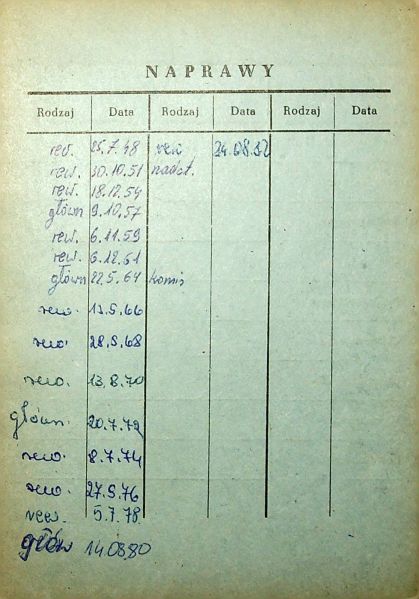 NAPRAWY
Rodzaj Data Rodzaj Data Rodzaj Data
rew. 25.7.48 rew 24.08.82
rew. 30.10.51 nadzt.
rew. 18.12.54
główn 9.10.57
rew. 6.11.59
rew. 6.12.61
główn 22.5.64 komis
rew. 13.5.66
rew. 28.5.68
rew. 13.8.70
główn. 20.7.72
rew. 8.7.74
rew. 27.5.76
rew. 5.7.78
głów 14.08.80